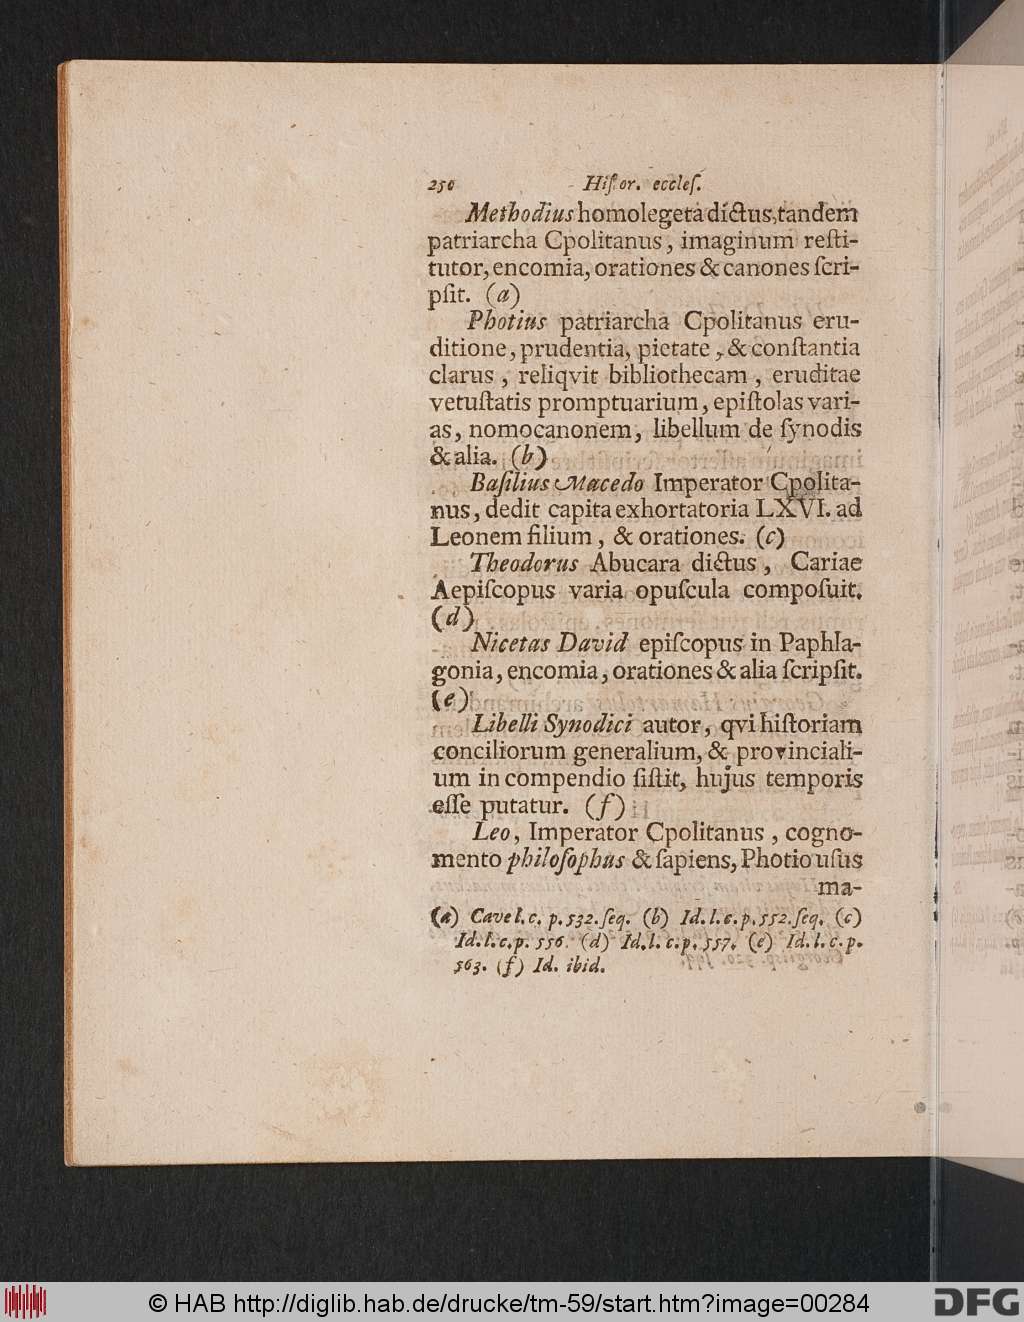 250 Histor. eccles.
Methodius homolegeta dictus, tandem
patriarcha Cpolitanus, imaginum resti-
tutor, encomia, orationes & canones scri-
psit. (a)
Photius patriarcha Cpolitanus eru-
ditione, prudentia, pietate, & constantia
clarus, reliqvit bibliothecam, eruditae
vetustatis promptuarium, epistolas vari-
as, nomocanonem, libellum de synodis
& alia. (b)
Basilius Macedo Imperator Cpolita-
nus, dedit capita exhortatoria LXVI. ad
Leonem filium, & orationes. (c)
Theodorus Abucara dictus, Cariae
Aepiscopus varia opuscula composuit.
(d)
Nicetas David episcopus in Paphla-
gonia, encomia, orationes & alia scripsit.
(e)
Libelli Synodici autor, qvi historiam
conciliorum generalium, & provinciali-
um in compendio sistit, hujus temporis
esse putatur. (f)
Leo, Imperator Cpolitanus, cogno-
mento philosophus & sapiens, Photio usus
ma-
(a) Cave l. c. p. 532. seq. (b) Id. l. c. p. 552. seq. (c)
Id. l. c. p. 556. (d) Id. l. c. p. 557. (e) Id. l. c. p.
563. (f) Id. ibid.
© HAB http://diglib.hab.de/drucke/tm-59/start.htm?image=00284
DFG